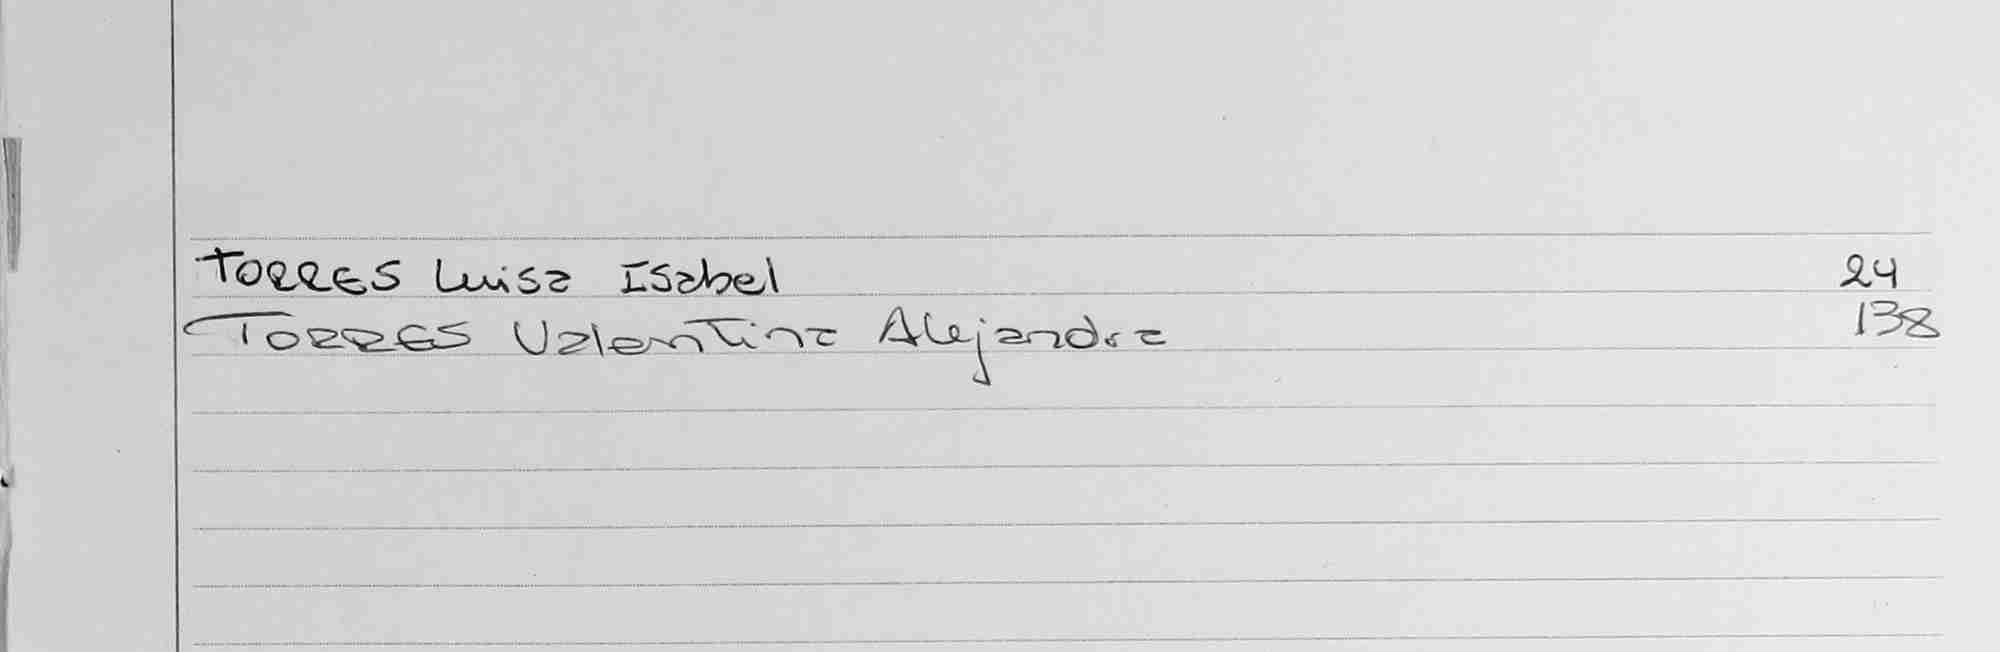 TORRES Luisa Isabel 24
TORRES Valentina Alejandra 138